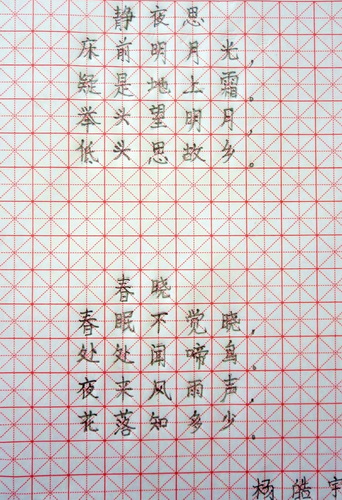 静夜思
床前明月光，
疑是地上霜。
举头望明月，
低头思故乡。
春晓
春眠不觉晓，
处处闻啼鸟。
夜来风雨声，
花落知多少。
杨皓宇